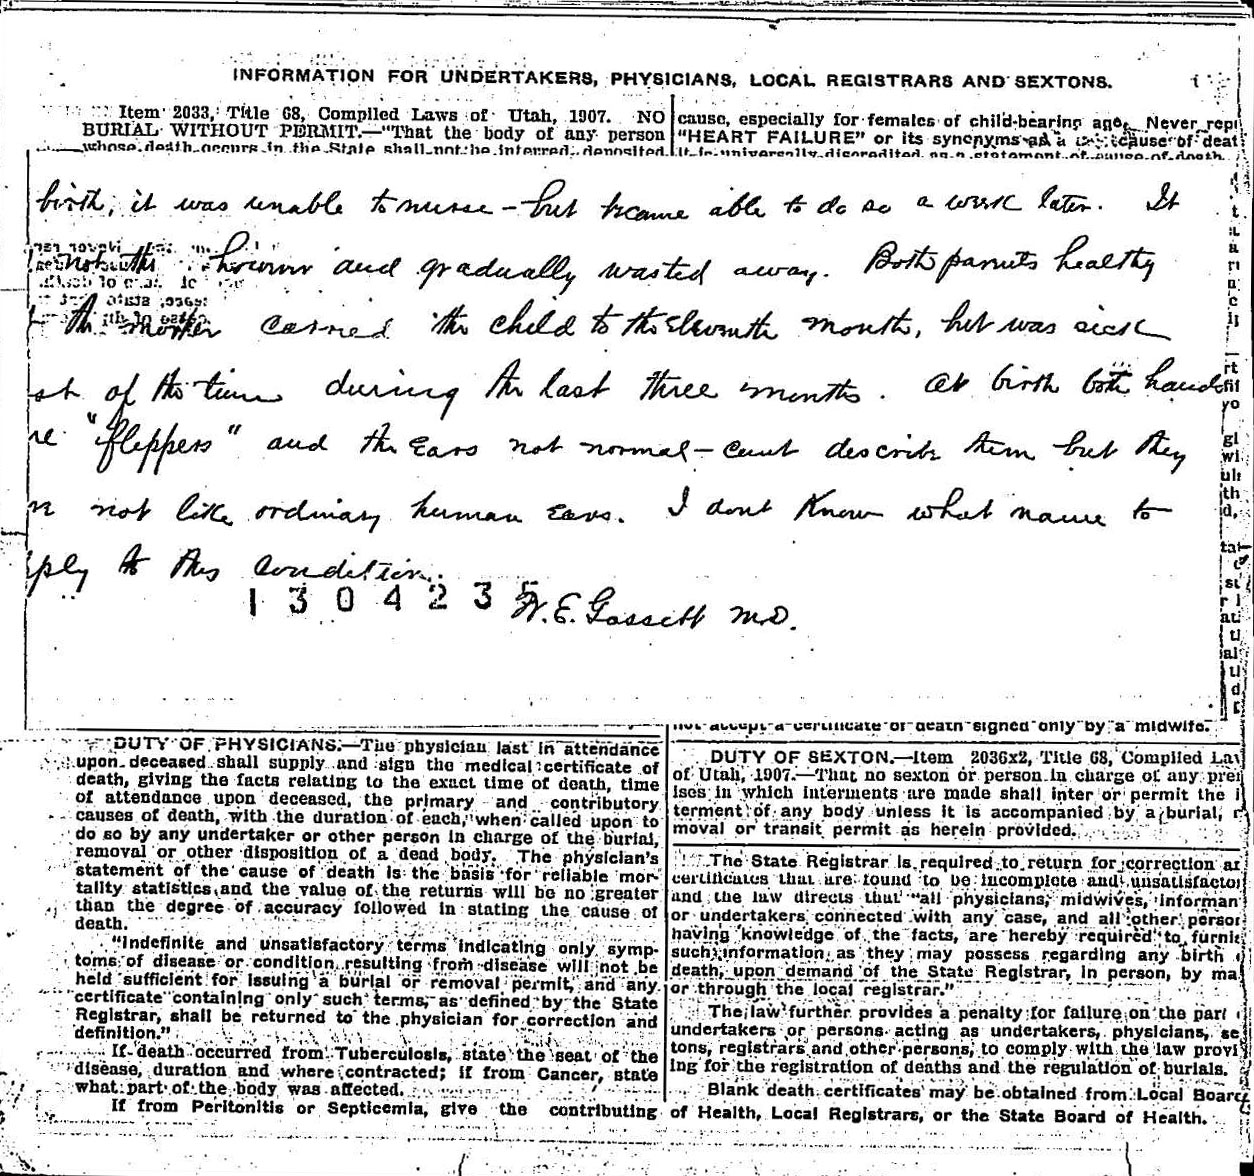 INFORMATION FOR UNDERTAKERS, PHYSICIANS, LOCAL REGISTRARS AND SEXTONS.
Item 2033, Title 68, Compiled Laws of Utah, 1907. NO
BURIAL WITHOUT PERMIT.—"That the body of any person
whose death occurs in the State shall not be interred, deposited
cause, especially for females of child-bearing age. Never
"HEART FAILURE" or its synonyms as a cause of
It is universally discredited as a statement of cause of death.
birth, it was unable to nurse - but became able to do so a week later. It
however and gradually wasted away. Both parents healthy
the mother carried the child to the eleventh month, but was sick
of the time during the last three months. At birth both hands
"flippers" and the Ears not normal - cant describe them but they
not like ordinary human Ears. I dont Know what name to
to this condition.
1304235
W. E. Gossett M.D.
not accept a certificate of death signed only by a midwife.
DUTY OF PHYSICIANS.—The physician last in attendance
upon deceased shall supply and sign the medical certificate of
death, giving the facts relating to the exact time of death, time
of attendance upon deceased, the primary and contributory
causes of death, with the duration of each, when called upon to
do so by any undertaker or other person in charge of the burial,
removal or other disposition of a dead body. The physician's
statement of the cause of death is the basis for reliable mor-
tality statistics and the value of the returns will be no greater
than the degree of accuracy followed in stating the cause of
death.
"Indefinite and unsatisfactory terms indicating only symp-
toms of disease or condition resulting from disease will not be
held sufficient for issuing a burial or removal permit, and any
certificate containing only such terms, as defined by the State
Registrar, shall be returned to the physician for correction and
definition."
If death occurred from Tuberculosis, state the seat of the
disease, duration and where contracted; if from Cancer, state
what part of the body was affected.
If from Peritonitis or Septicemia, give the contributing
DUTY OF SEXTON.—Item 2036x2, Title 68, Compiled
of Utah, 1907.—That no sexton or person in charge of any
ises in which interments are made shall inter or permit the
terment of any body unless it is accompanied by a burial,
moval or transit permit as herein provided.
The State Registrar is required to return for correction
certificates that are found to be incomplete and
and the law directs that "all physicians, midwives,
or undertakers connected with any case, and all other
having knowledge of the facts, are hereby required to
such information as they may possess regarding any birth
death, upon demand of the State Registrar, in person, by
or through the local registrar."
The law further provides a penalty for failure on the part
undertakers or persons acting as undertakers, physicians,
tons, registrars and other persons, to comply with the law
ing for the registration of deaths and the regulation of burials.
Blank death certificates may be obtained from Local
of Health, Local Registrars, or the State Board of Health.